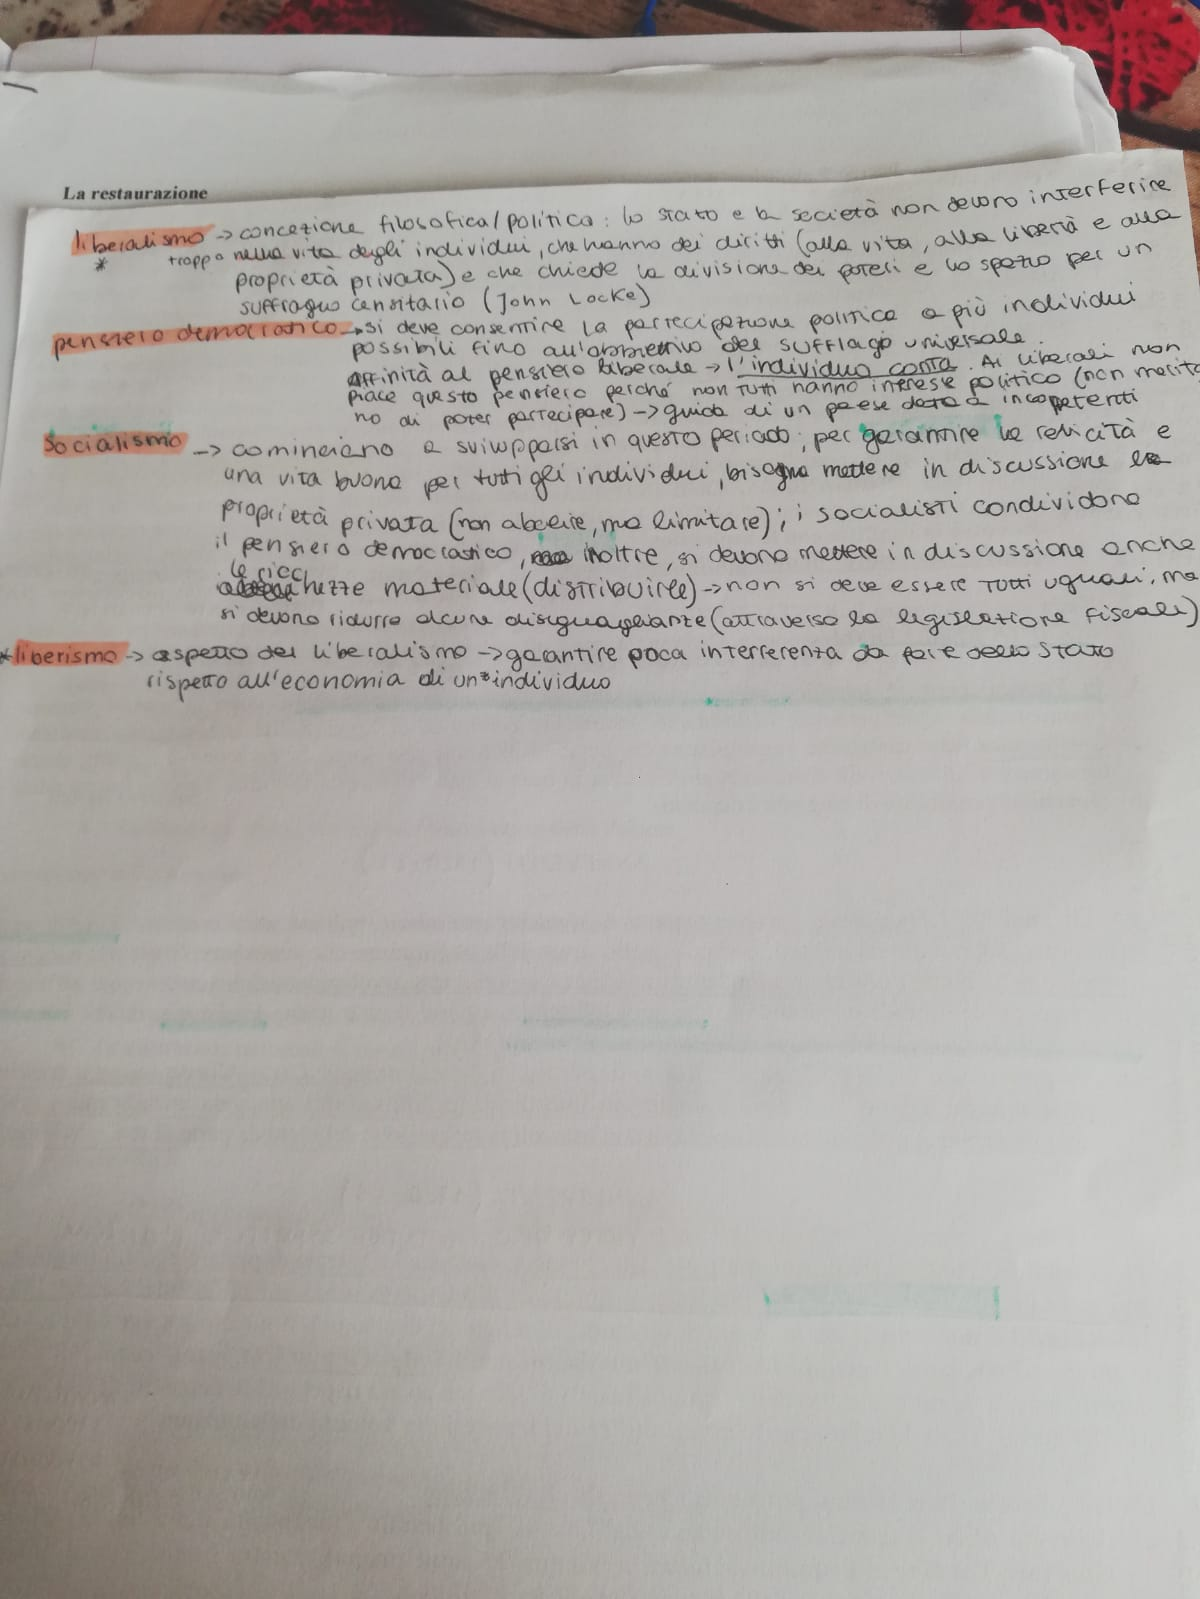 La restaurazione
liberalismo -> concezione filosofica/politica: lo stato e la società non devono interferire
* troppo nella vita degli individui, che hanno dei diritti (alla vita, alla libertà e alla
proprietà privata) e che chiede la divisione dei poteri e lo spazio per un
suffragio censitario (John Locke)
pensiero democratico -> si deve consentire la partecipazione politica a più individui
possibili fino all'obbiettivo del suffragio universale.
Affinità al pensiero liberale -> l'individuo conta. Ai liberali non
piace questo pensiero perché non tutti hanno interesse politico (non merita
no di poter partecipare) -> guida di un paese data a incompetenti
socialismo -> cominciano a svilupparsi in questo periodo; per garantire la felicità e
una vita buona per tutti gli individui, bisogna mettere in discussione la
proprietà privata (non abolire, ma limitare); i socialisti condividono
il pensiero democratico, inoltre, si devono mettere in discussione anche
le ricchezze materiale (distribuirle) -> non si deve essere tutti uguali, ma
si devono ridurre alcune disuguaglianze (attraverso la legislazione fiscale)
*liberismo -> aspetto del liberalismo -> garantire poca interferenza da parte dello stato
rispetto all'economia di un individuo